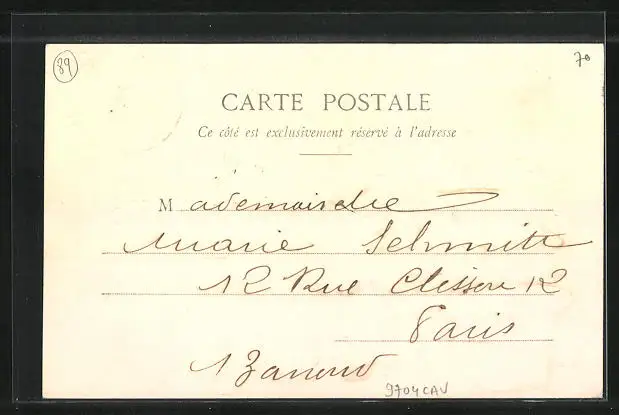 89
70
CARTE POSTALE
Ce côté est exclusivement réservé à l'adresse
Mademoiselle
Marie Schmitt
12 Rue Clisson 12
Paris
9704CAV